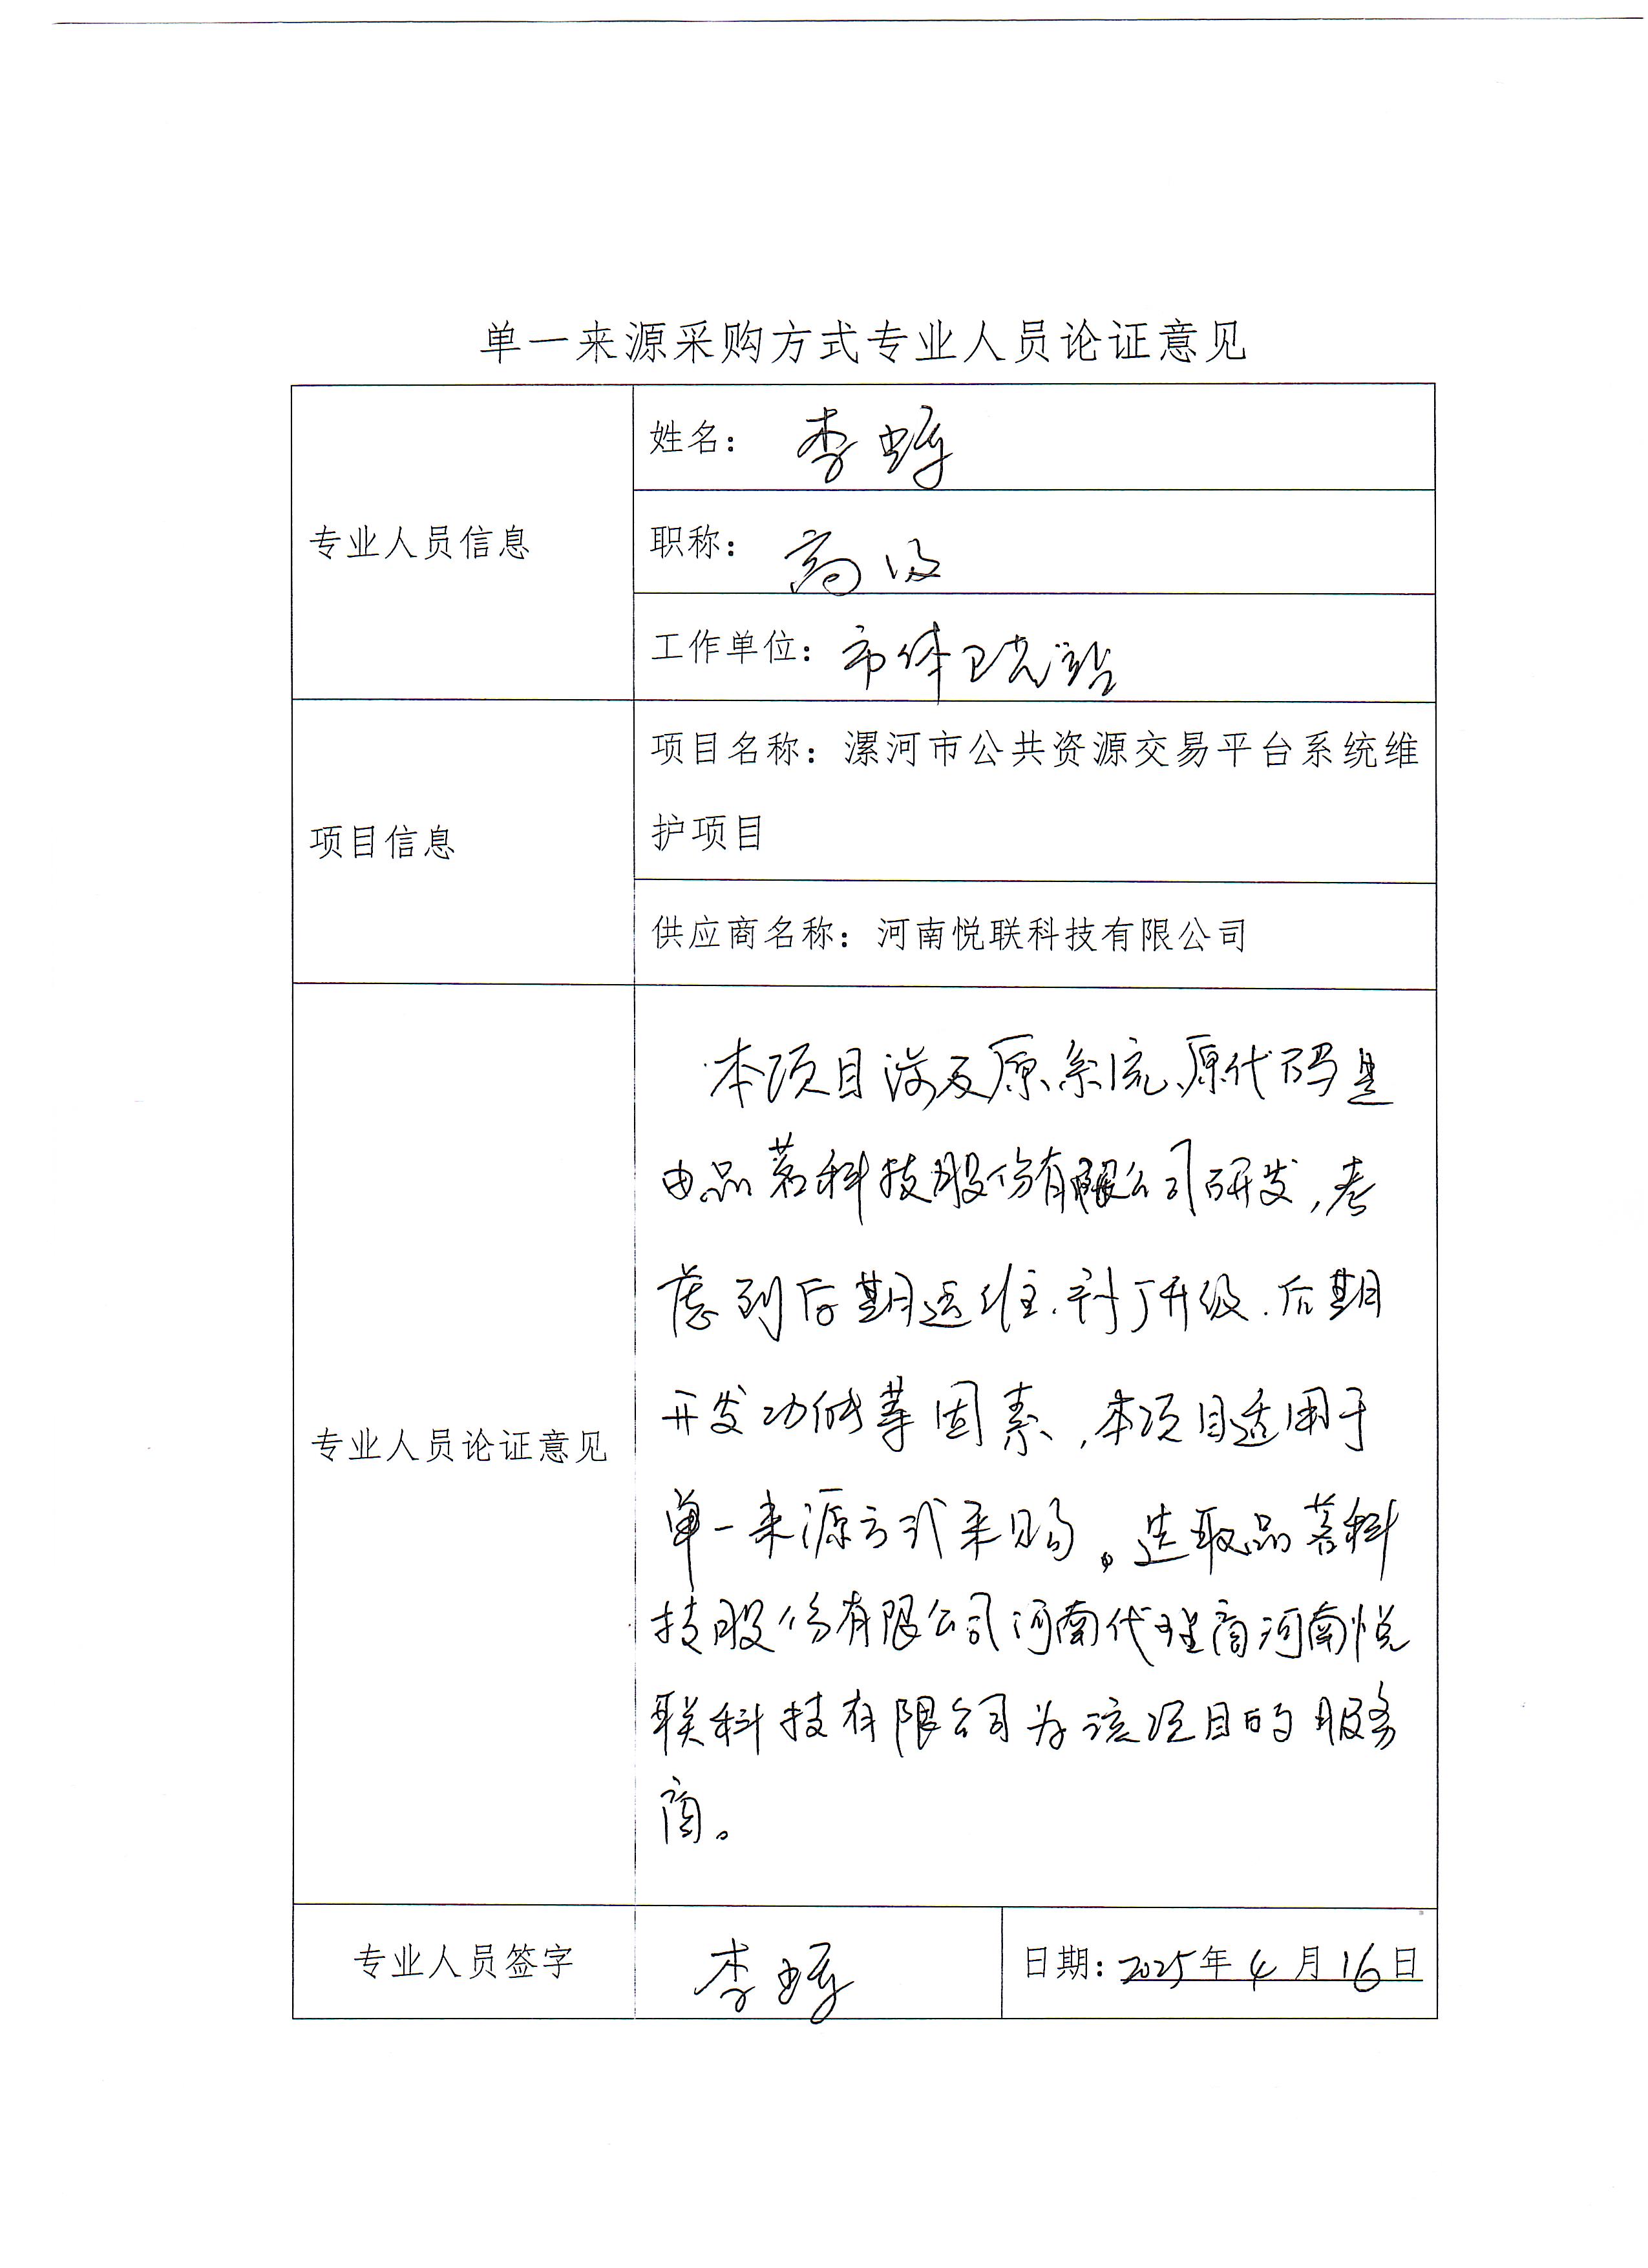 单一来源采购方式专业人员论证意见
专业人员信息
姓名： 李
职称： 高级
工作单位： 市体卫艺站
项目信息
项目名称：漯河市公共资源交易平台系统维
护项目
供应商名称：河南悦联科技有限公司
专业人员论证意见
本项目涉及原系统、原代码是
由品茗科技股份有限公司研发，考
虑到后期运维、补丁升级、后期
开发功能等因素，本项目适用于
单一来源方式采购。选取品茗科
技股份有限公司河南代理商河南悦
联科技有限公司为该项目的服务
商。
专业人员签字
李
日期：2025年4月16日